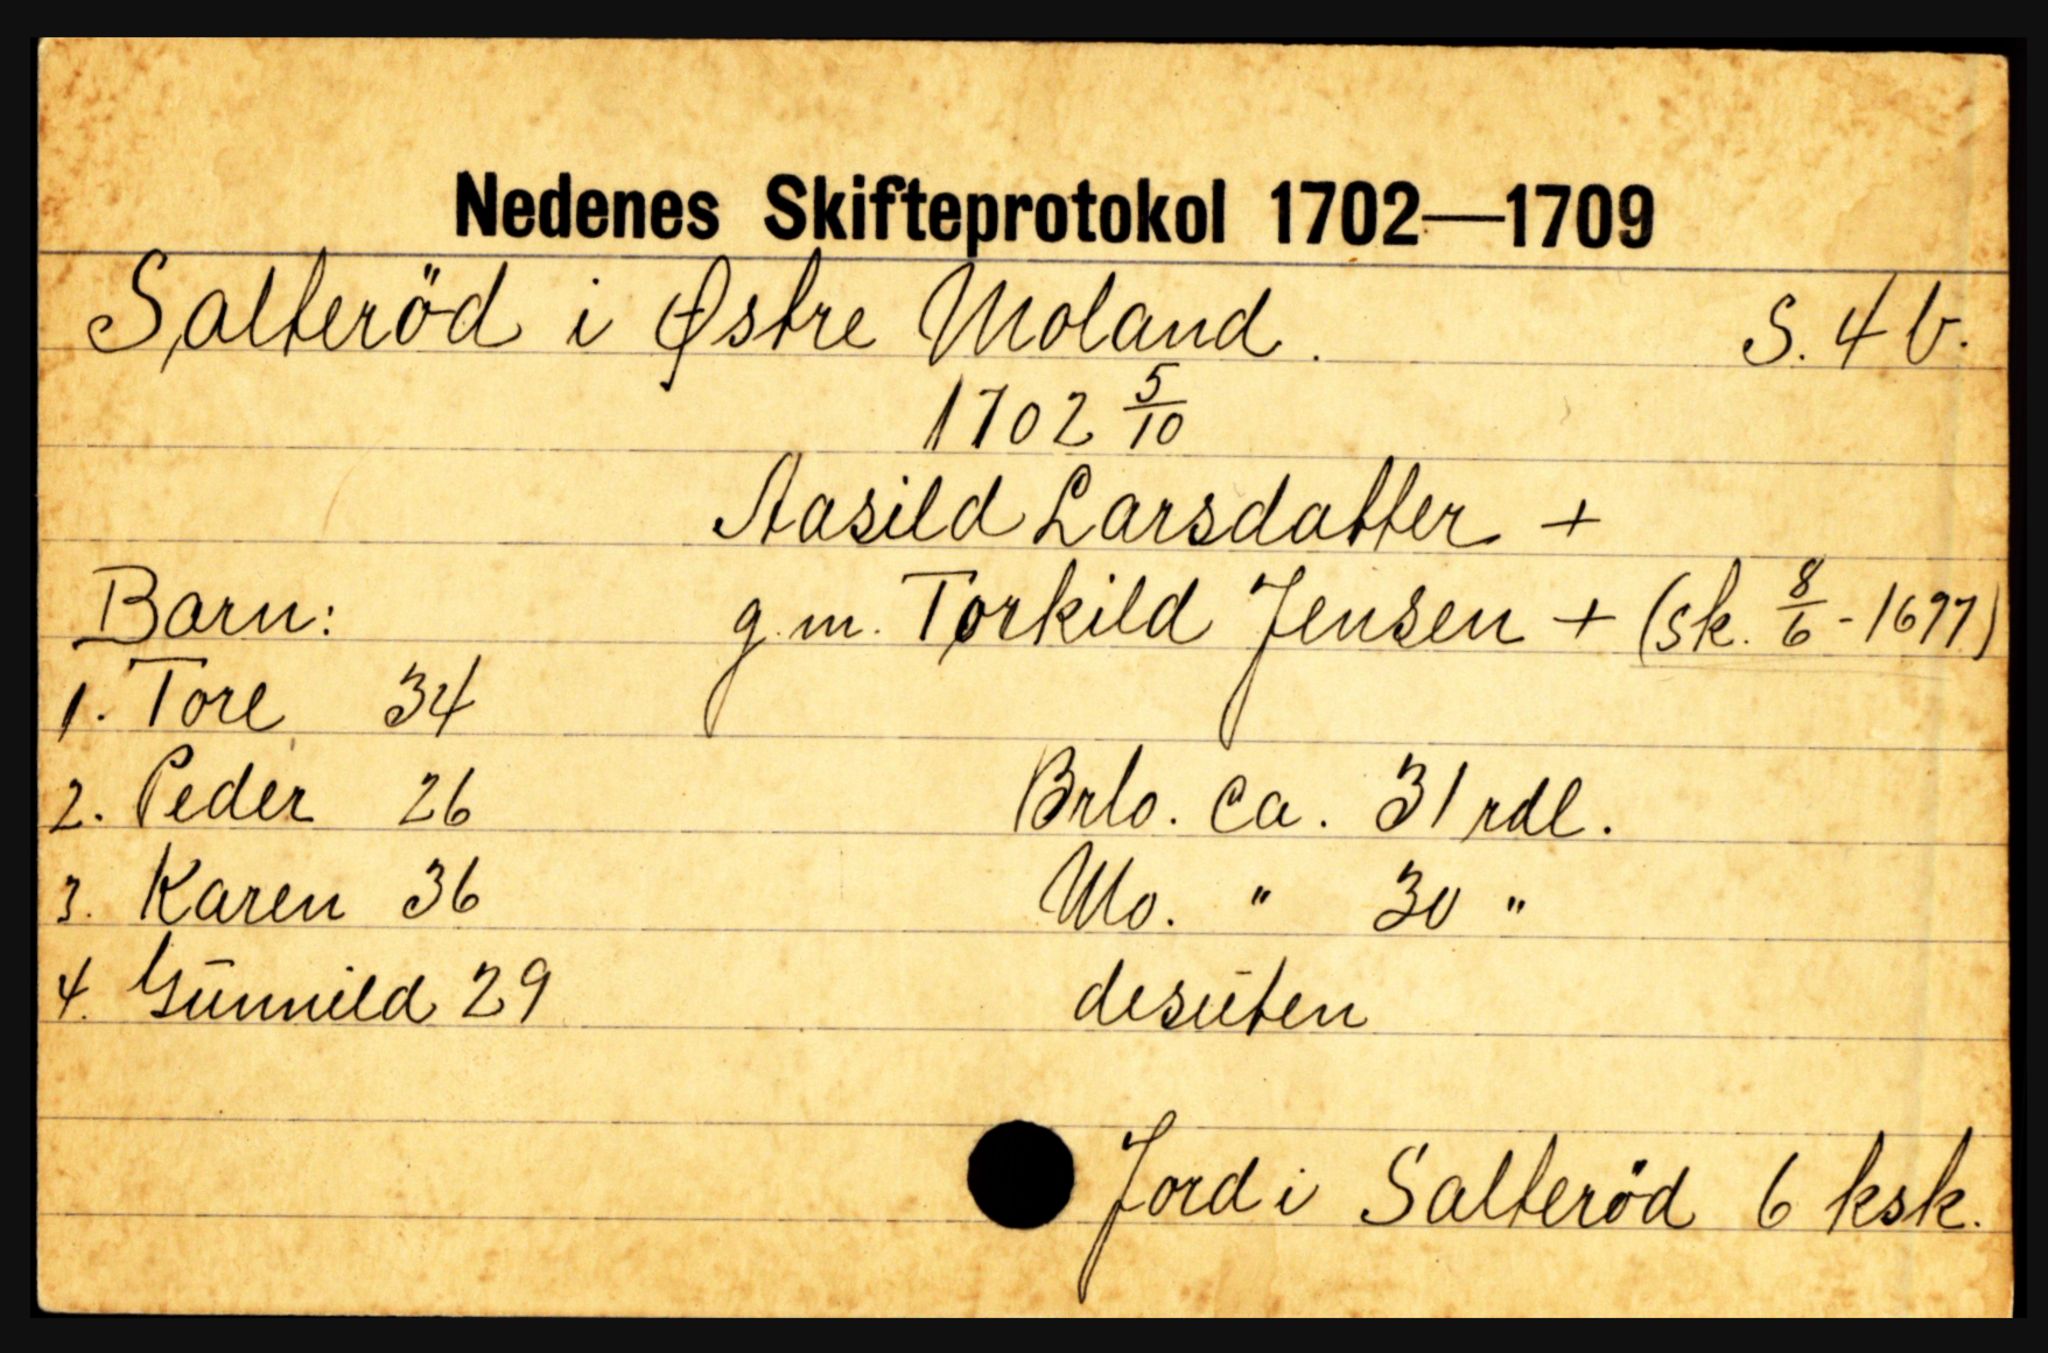 Nedenes Skifteprotokol 1702—1709
Salteröd i Østre Moland. S. 4 b.
1702 5/10
Aasild Larsdatter +
Barn: g.m. Torkild Jensen + (sk. 8/6 - 1697)
1. Tore 34
2. Peder 26 Brlo. ca. 31 rdl.
3. Karen 36 Mo. " 30 "
4. Gūnnild 29 desūten
Jord i Salteröd 6 ksk.